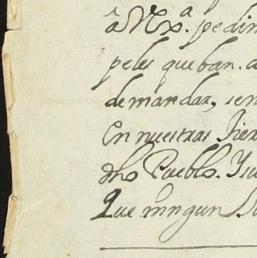 â Vxª. pedim
peles que ban. a
demandar, sen
En nuestras tier
dho Pueblo. Y su
Que mngun